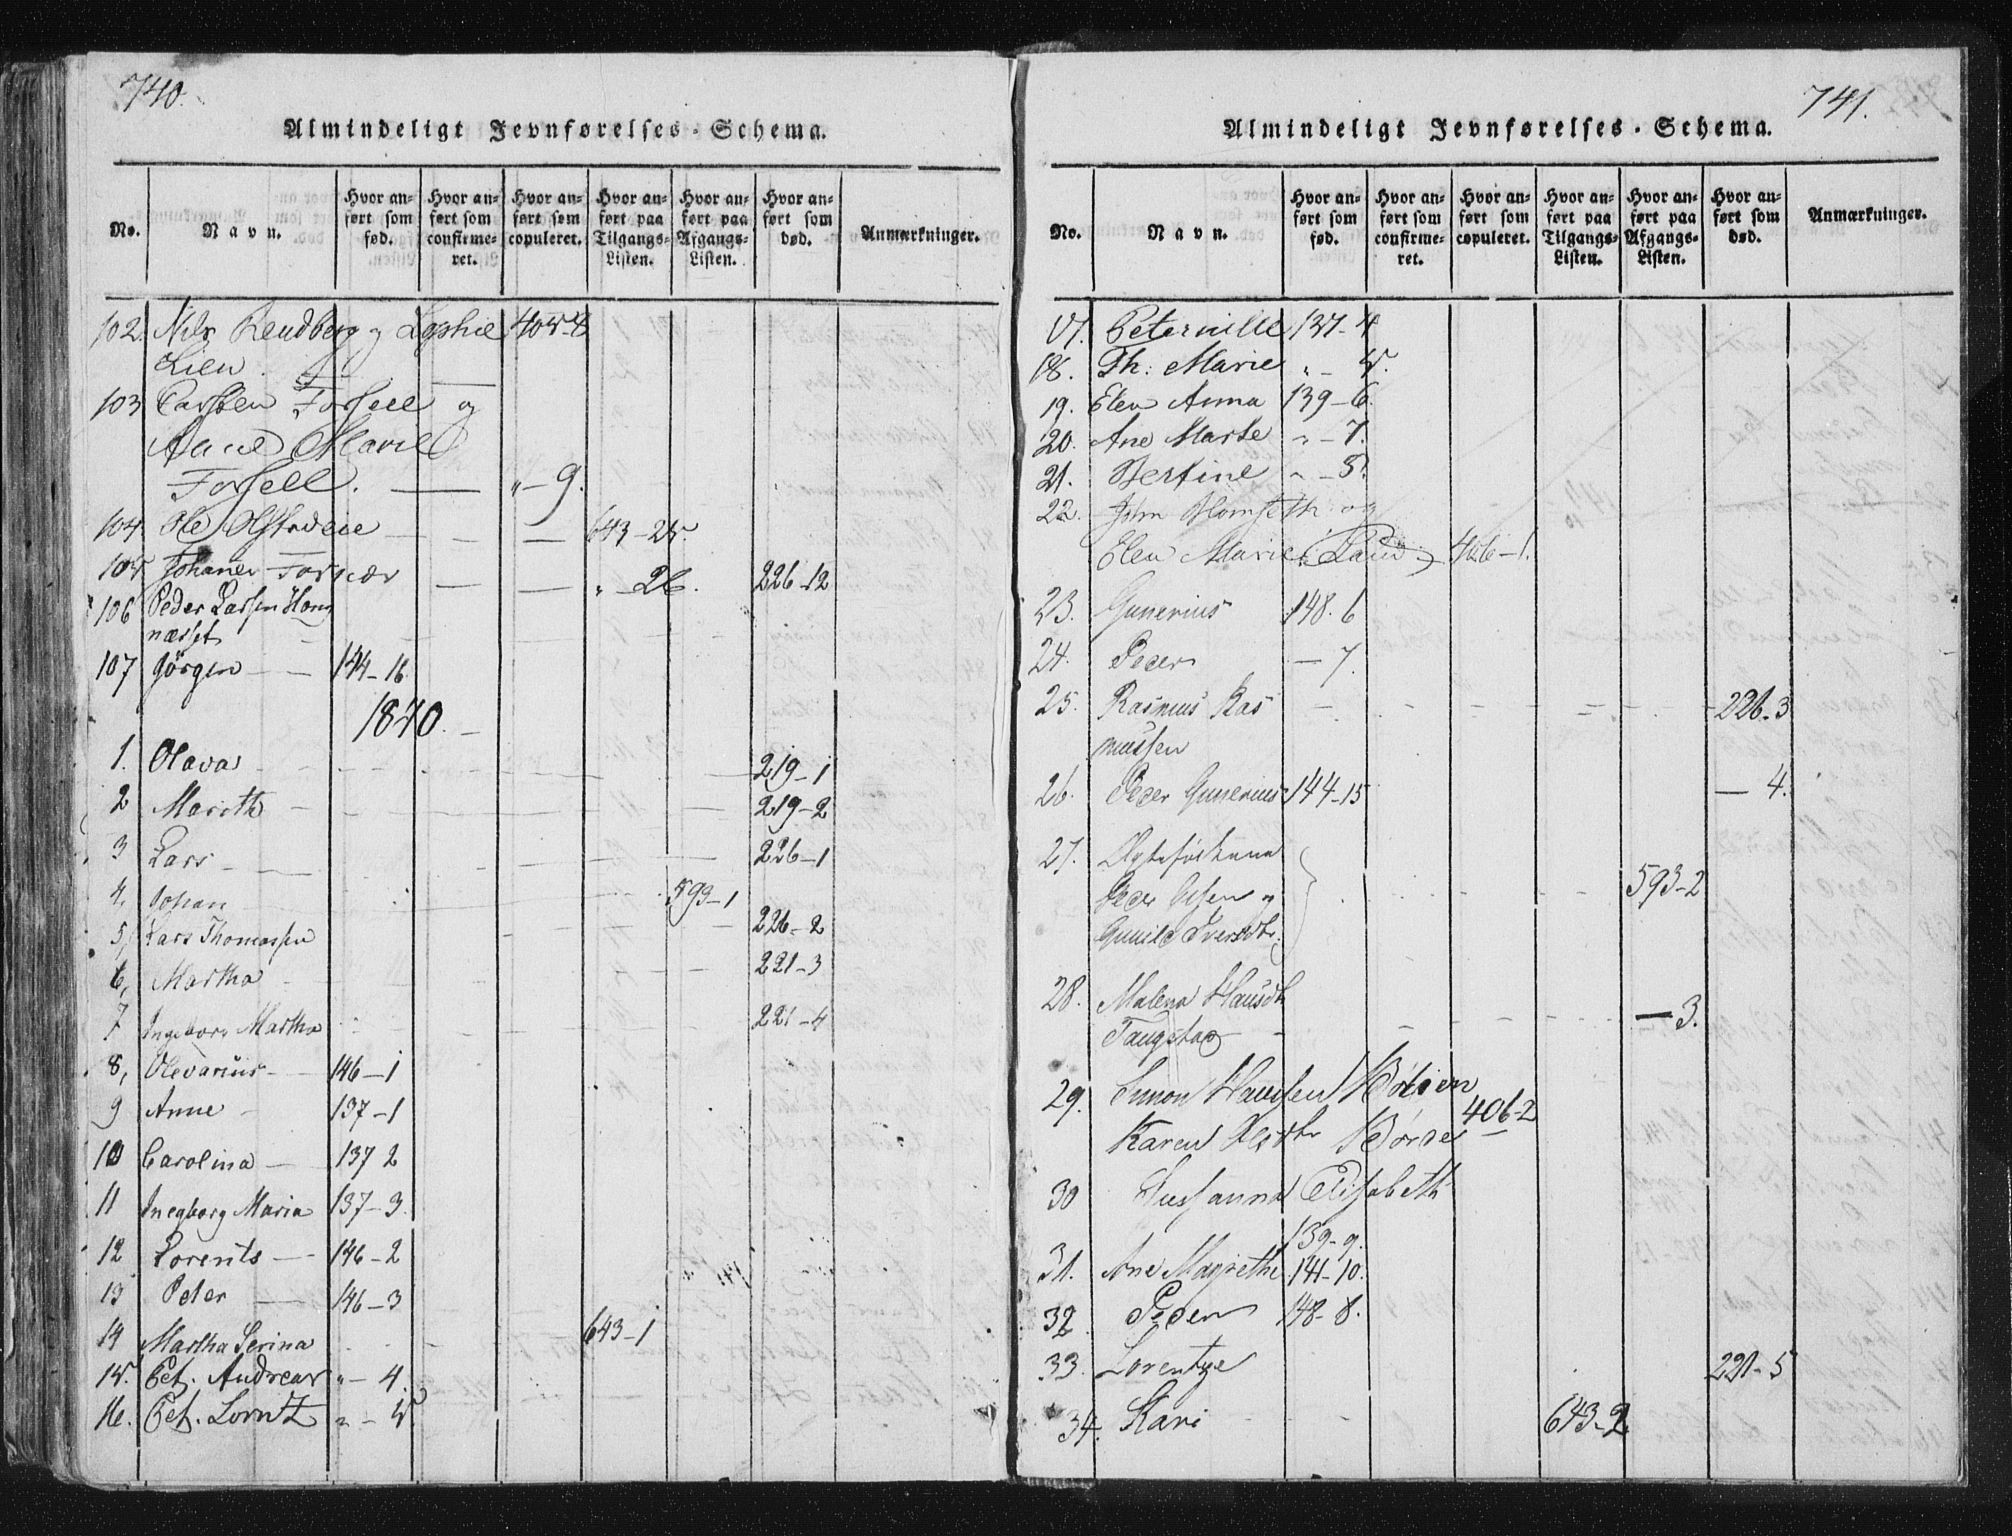 740.
Almindeligt Jevnførelses-Schema.
No. | Navn. | Hvor anført som fød. | Hvor anført som confirmeret. | Hvor anført som copuleret. | Hvor anført paa Tilgangs-Listen. | Hvor anført paa Afgangs-Listen. | Hvor anført som død. | Anmærkninger.
102. Nils Rendberg og Sophie 405-8
Lien.
103 Carsten Forsell og
Anne Marie
Forsell. — „-9.
104. Ole 643-25.
105 Johanes „-26. 226-12
106 Peder Larsen
næsset
107 Jörgen 144-16.
1840.
1. Olava 219-1
2 Marith 219-2
3 Lars 226-1
4, Johan 593-1
5, Lars Thomassen 226-2
6, Martha 221-3
7 Ingeborg Martha 221-4
8, Olevarius 146-1
9 Anne 137-1
10 Carolina 137 2
11 Inegborg Maria 137-3
12 Lorents 146-2
13 Peter 146-3
14 Martha Serina 643-1
15. Pet. Andreas „-4.
16. Pet. Lorntz „-5
741.
Almindeligt Jevnførelses-Schema.
No. | Navn. | Hvor anført som fød. | Hvor anført som confirmeret. | Hvor anført som copuleret. | Hvor anført paa Tilgangs-Listen. | Hvor anført paa Afgangs-Listen. | Hvor anført som død. | Anmærkninger.
17. Peternille 137-4
18. Th. Marie „-5.
19. Elen Anna 139-6.
20. Ane Marte „-7.
21. Bertine „-8.
22. John og
Elen Marie 406-1.
23. Gunerius 148.6
24. Peder — 7.
25. Rasmus Ras 226-3
mussen
26. Peder Gunerius 144-15 — 4.
27. Ægtefolkene
Peder Olsen og 593-2
Gunild Iversdtr.
28. Malena Hansdtr
Taugstad — 3.
29. Simon Hansen
Karen Olsdtr 406-2
30 Sussanna Elisabeth
139-9.
31. Ane Magrethe 141-10.
32. Peder 148-8.
33. Lorentze 221-5
34. Kari 643-2